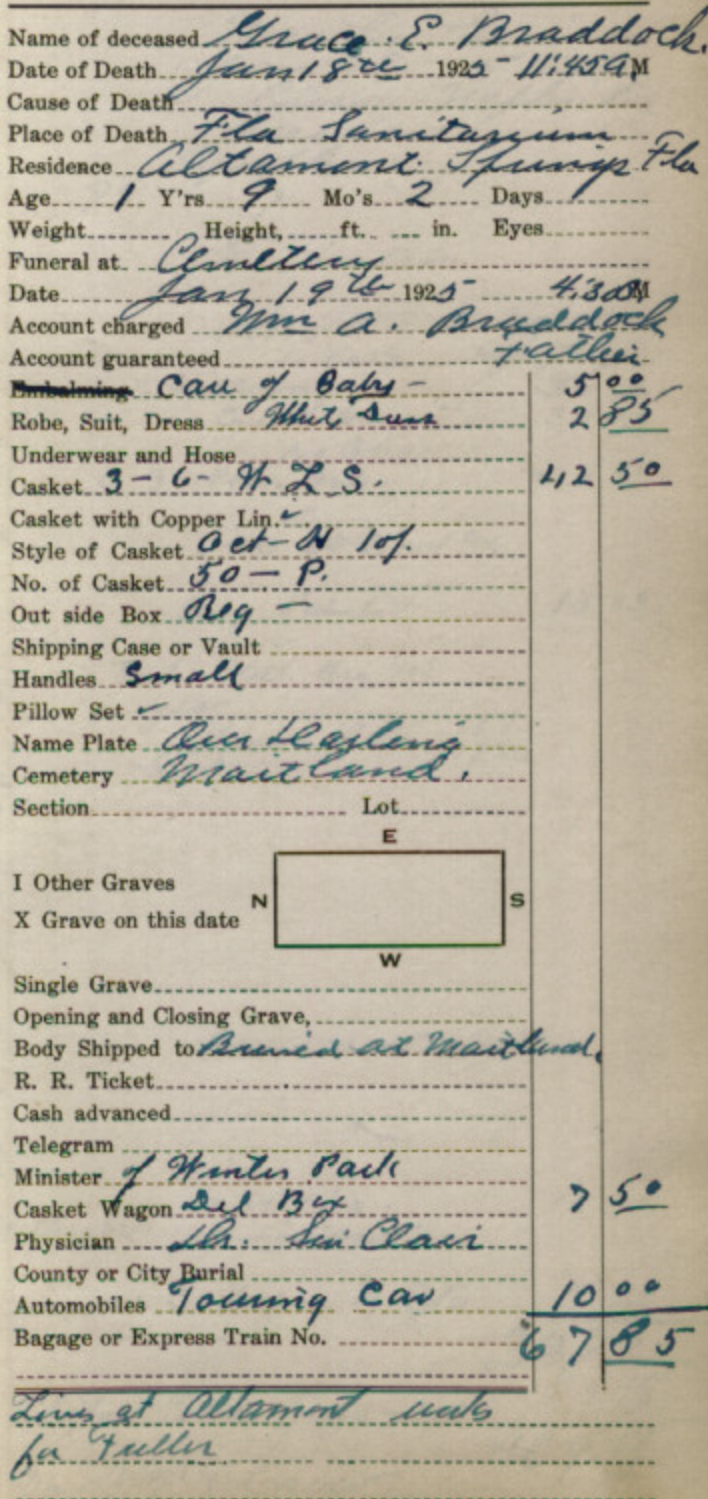 Name of deceased Grace E. Braddock.
Date of Death Jan 18th 1925 - 11:45 A M
Cause of Death
Place of Death Fla Sanitarium
Residence Altamont Springs Fla
Age 1 Y'rs 9 Mo's 2 Days
Weight Height, ft. in. Eyes
Funeral at Cemetery
Date Jan 19th 1925 4:30 M
Account charged Wm A. Braddock
Account guaranteed Father
Embalming Care of Baby - 5 00
Robe, Suit, Dress White Dress 2 85
Underwear and Hose
Casket 3 - 6 - W L S. 42 50
Casket with Copper Lin. ✓
Style of Casket Oct-
No. of Casket 50 - P.
Out side Box Reg -
Shipping Case or Vault
Handles Small
Pillow Set ✓
Name Plate Our Darling
Cemetery Maitland.
Section Lot
E
I Other Graves
N S
X Grave on this date
W
Single Grave
Opening and Closing Grave,
Body Shipped to Buried at Maitland.
R. R. Ticket
Cash advanced
Telegram
Minister of Winter Park
Casket Wagon Del Box 7 50
Physician Dr. Sin Clair
County or City Burial
Automobiles Touring Car 10 00
Bagage or Express Train No. 67 85
Lives at Altamont works
for Fuller